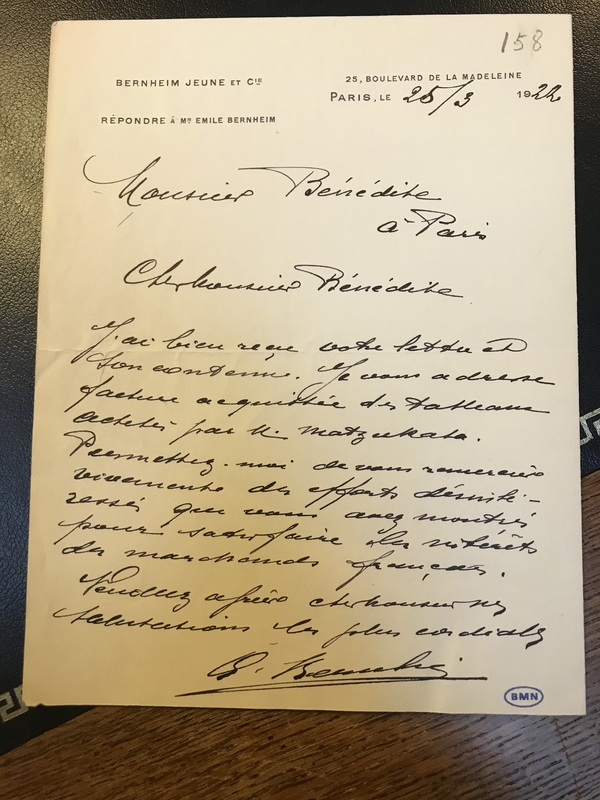 158
BERNHEIM JEUNE ET CIE
25, BOULEVARD DE LA MADELEINE
PARIS, LE 25/3 1922
RÉPONDRE À MR EMILE BERNHEIM
Monsieur Bénédite
à Paris
Cher Monsieur Bénédite
J'ai bien reçu votre lettre et
son contenu. Je vous adresse
facture acquittée des tableaux
achetés par M. Matzukata.
Permettez-moi de vous remercier
vivement des efforts désinté-
ressés que vous avez montrés
pour satisfaire les intérêts
des marchands français.
Veuillez agréer cher monsieur mes
salutations les plus cordiales
E. Bernheim
BMN